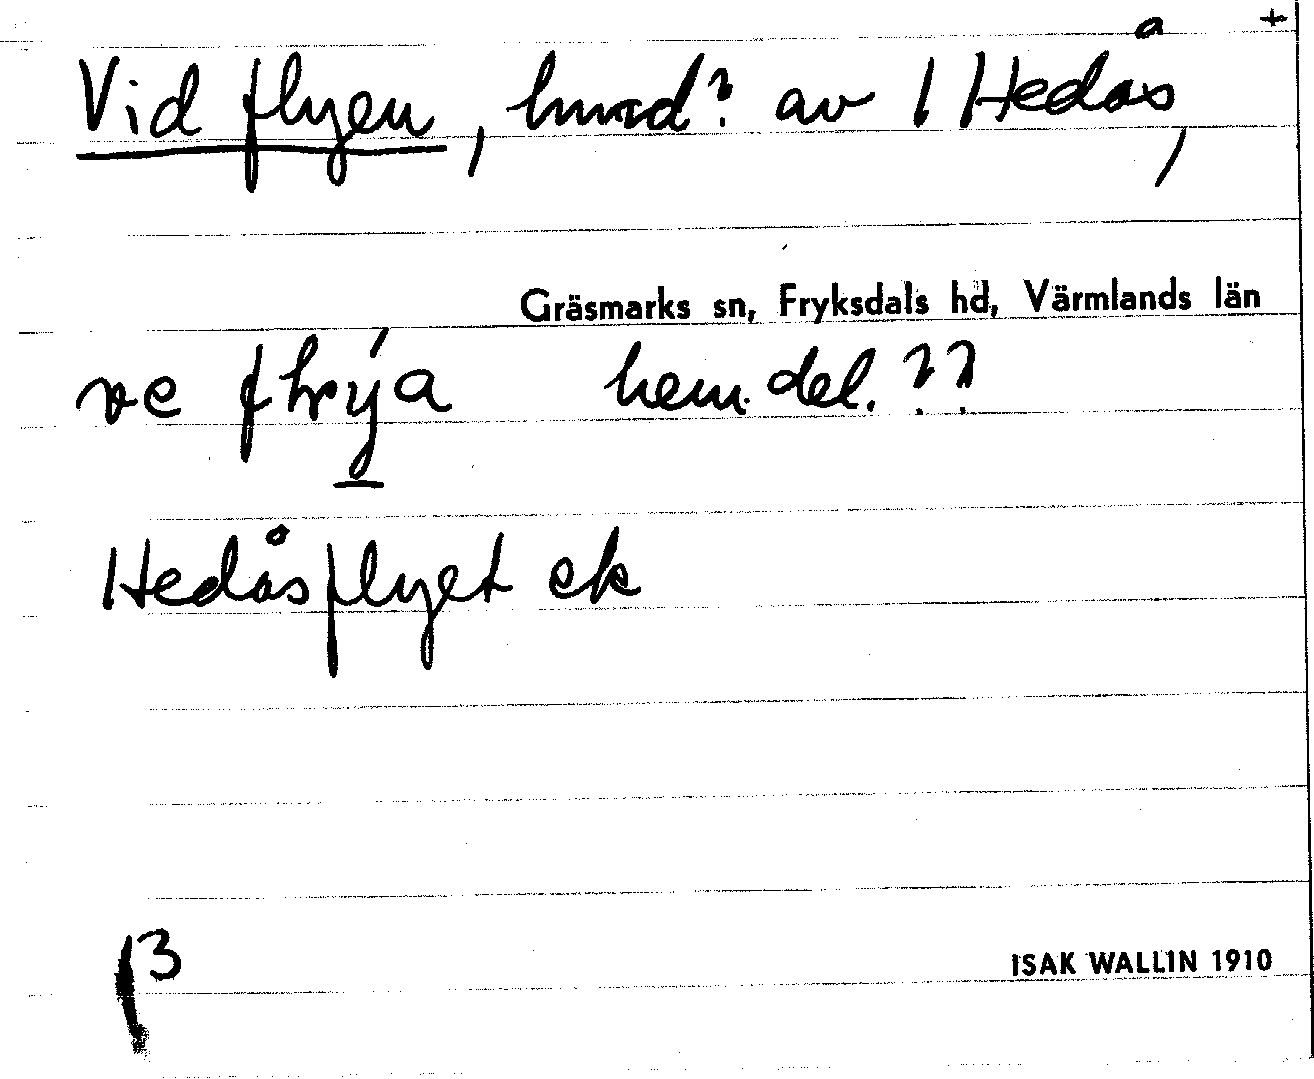 +
Vid flyen, hmd? av 1 Hedås,
Gräsmarks sn, Fryksdals hd, Värmlands län
ve flrýa hem.del.??
Hedåsflyet ek
13
ISAK WALLIN 1910